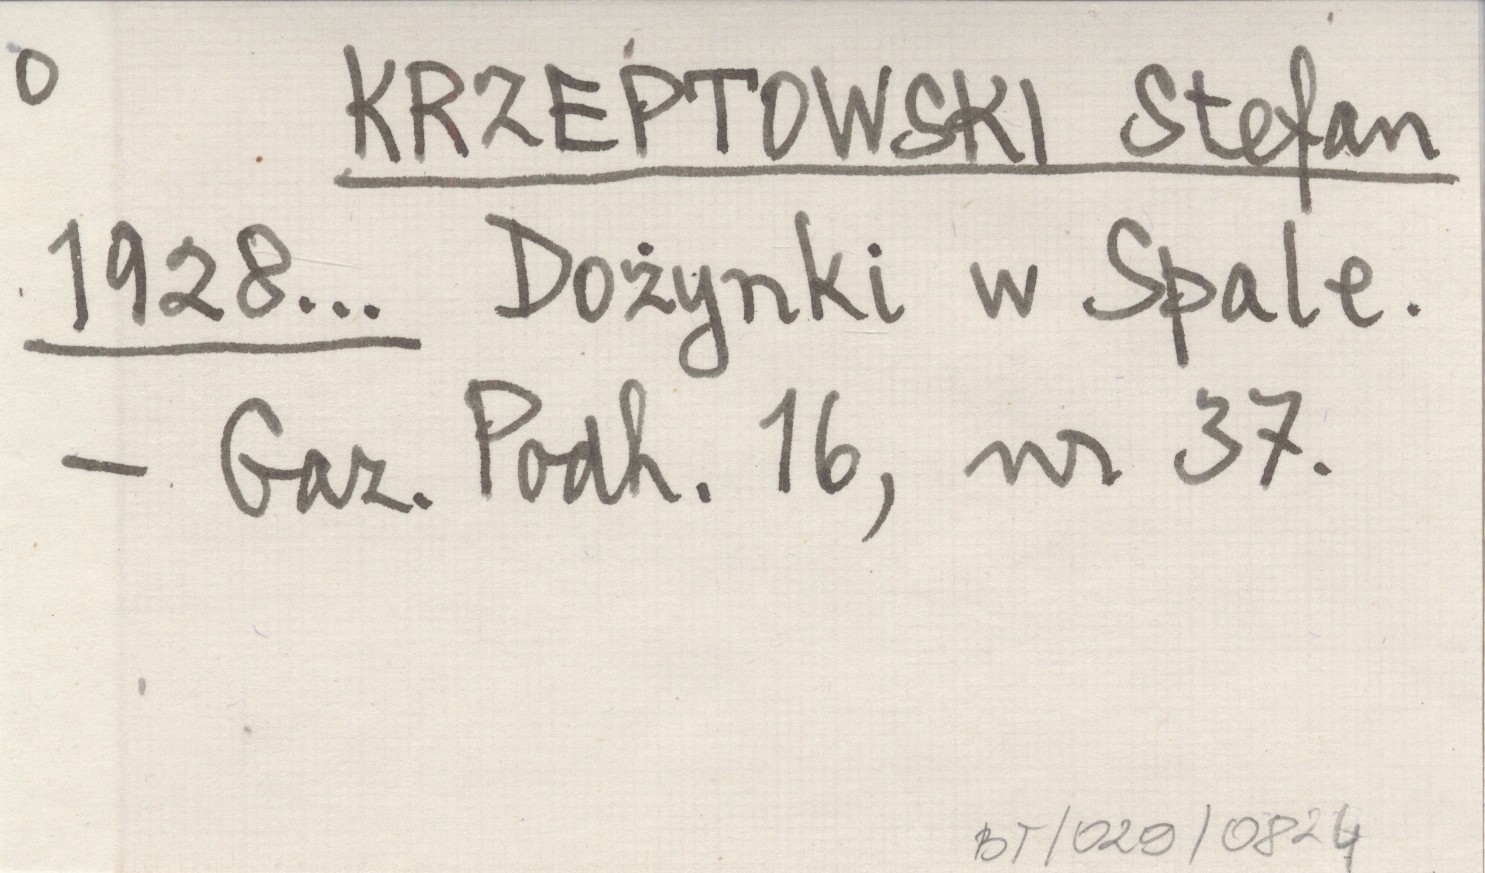 O KRZEPTOWSKI Stefan
1928... Dożynki w Spale.
— Gaz. Podh. 16, nr 37.
BT/029/0824